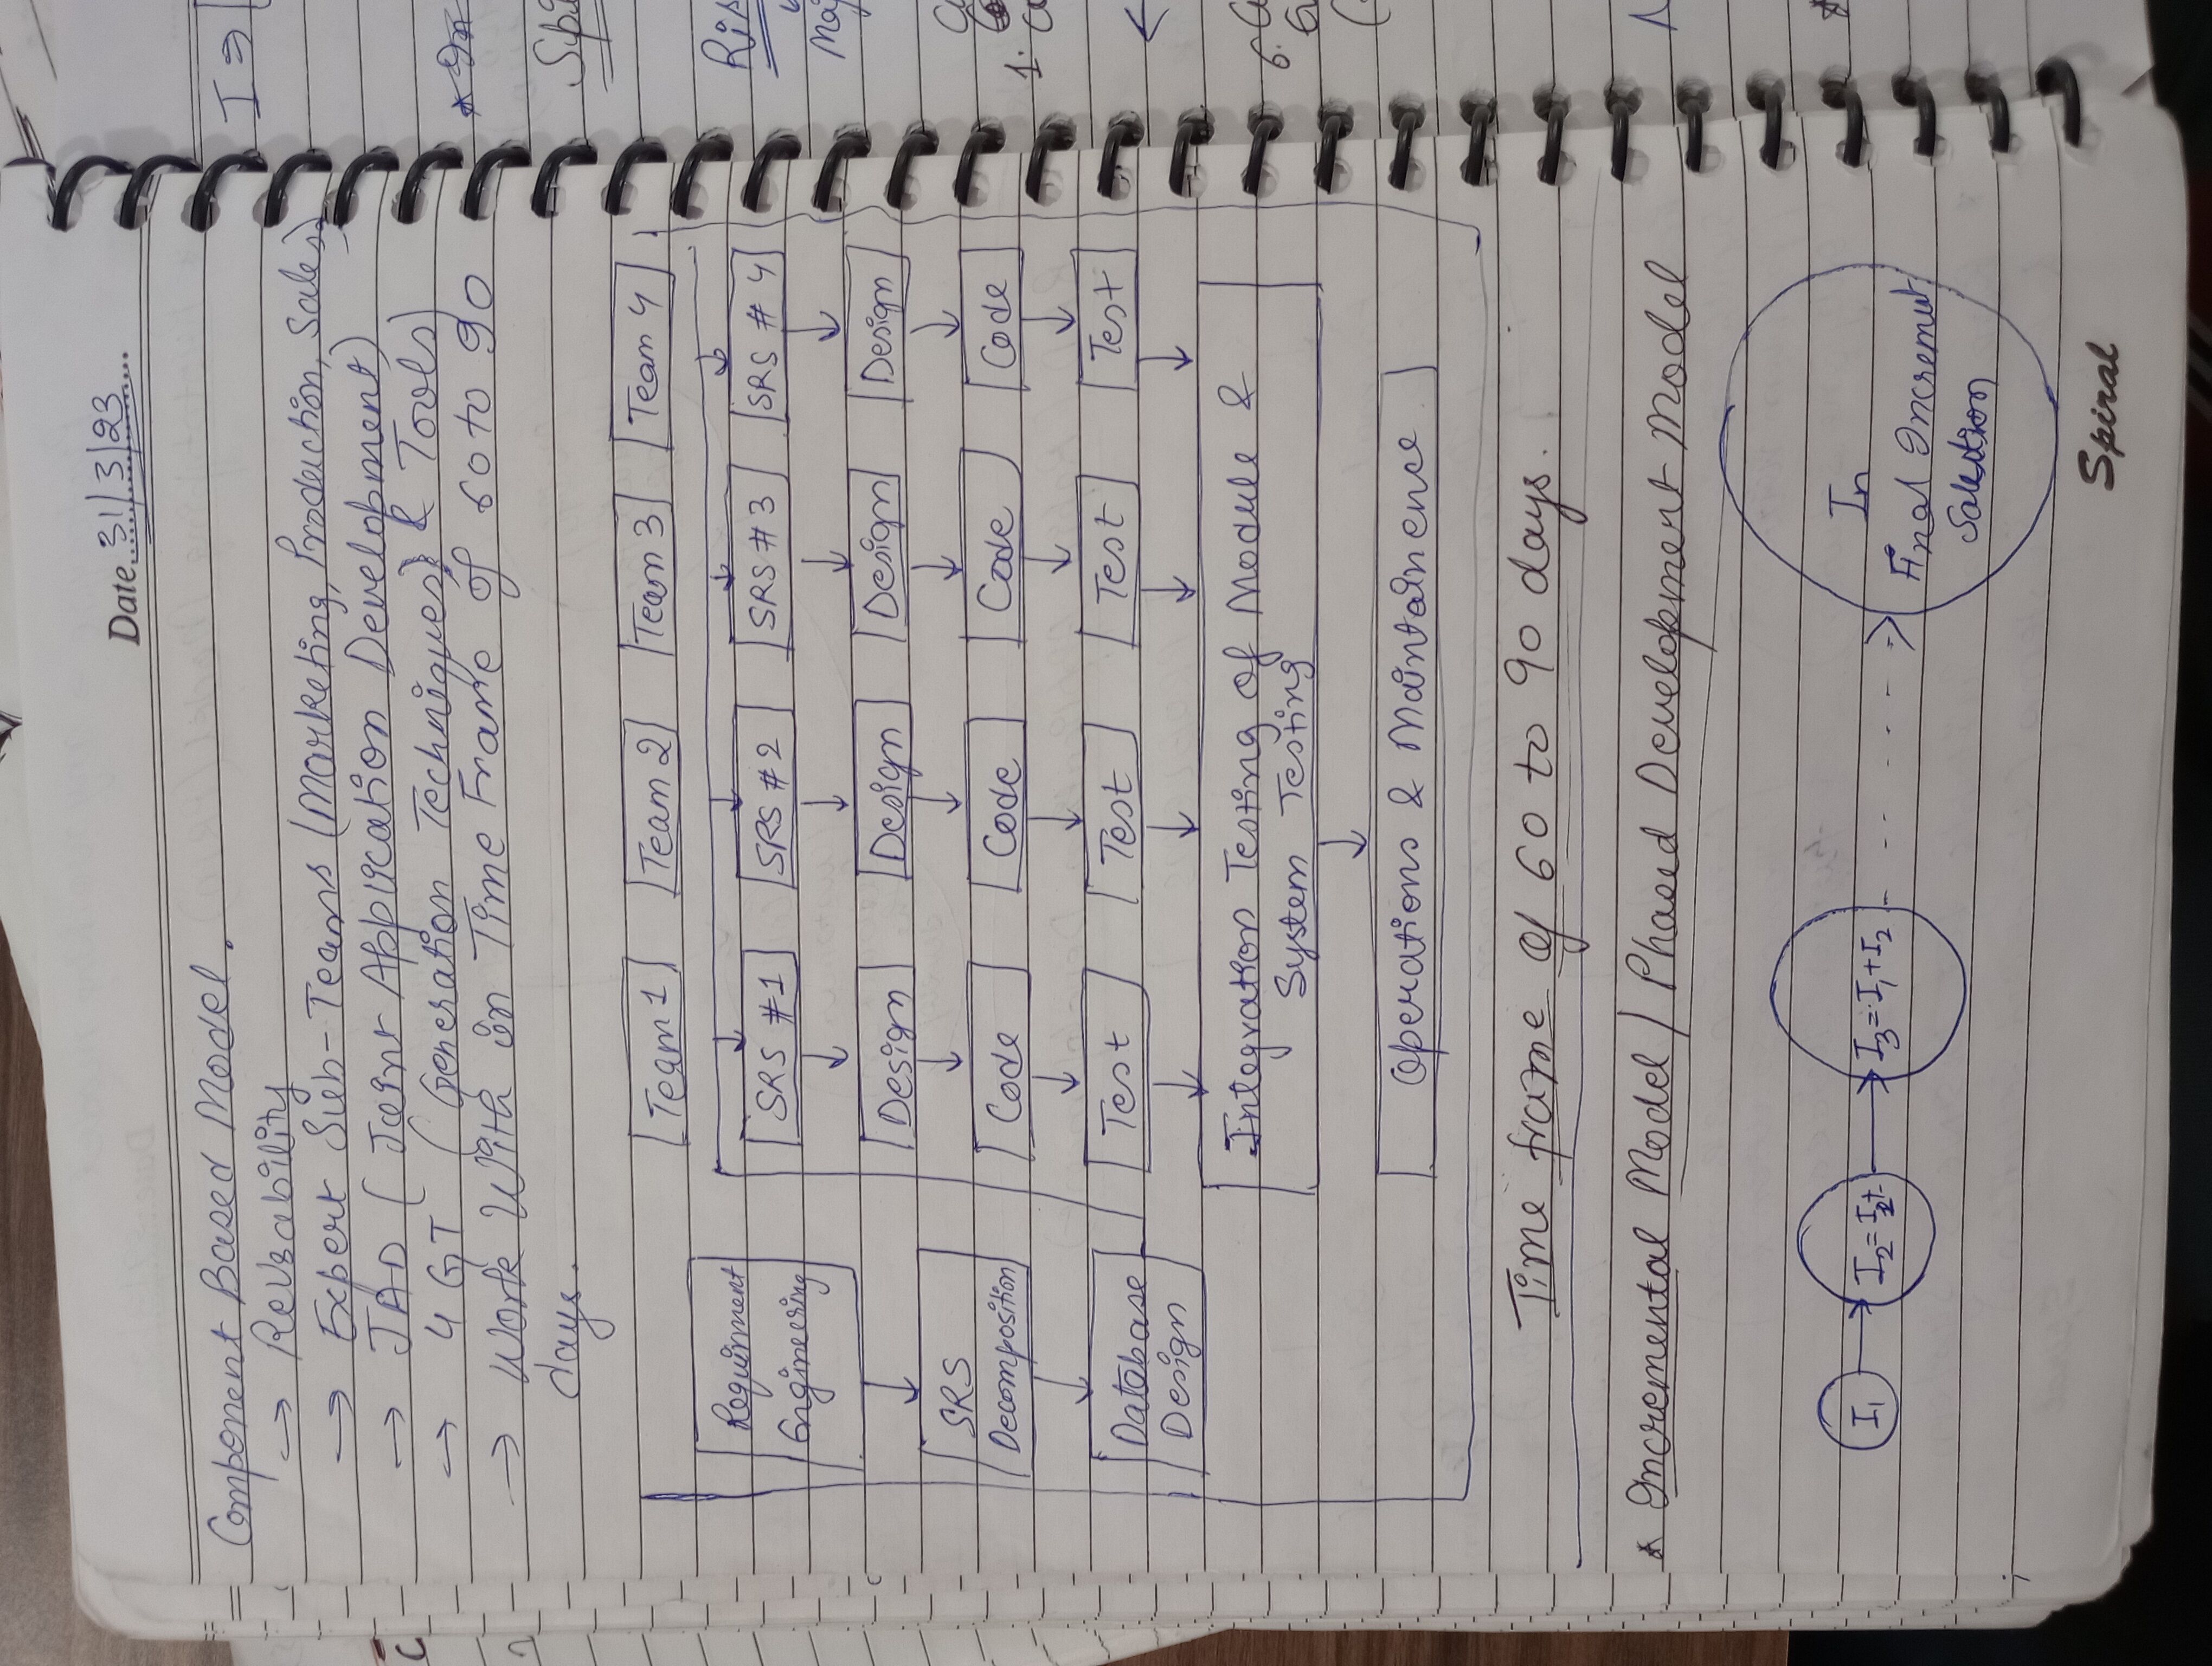 Date 31/3/23
Component Based Model.
→ Reusability
→ Expert Sub-Teams (Marketing, Production, Sales)
→ JAD (Joint Application Development)
→ 4 GT (Generation Techniques & Tools)
→ Work With in Time Frame of 60 to 90
days.
Team 1 Team 2 Team 3 Team 4
Requirment
Engineering
SRS #1 SRS #2 SRS #3 SRS #4
SRS
Decomposition
Design Design Design Design
Code Code Code Code
Database
Design
Test Test Test Test
Integration Testing of Module &
System Testing
Operations & Maintaince
Time frame of 60 to 90 days.
* Incremental Model / Phased Development Model
I1 → I2 = → I3 = I1 + I2 - - - - - → In
Final Increment
Solution
Spiral
I ⇒
Ris
6.
1.